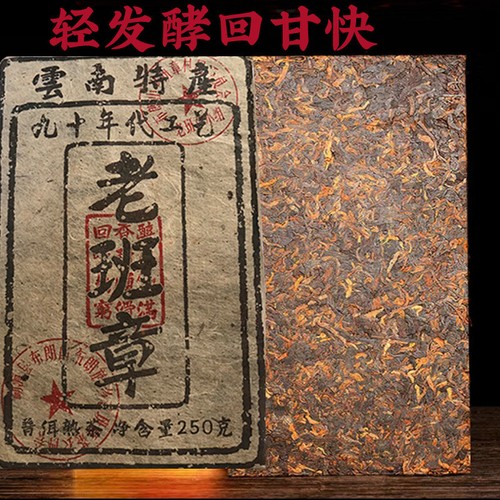 轻发酵回甘快
雲南特產
九十年代工艺
老班章
普洱熟茶 净含量250克